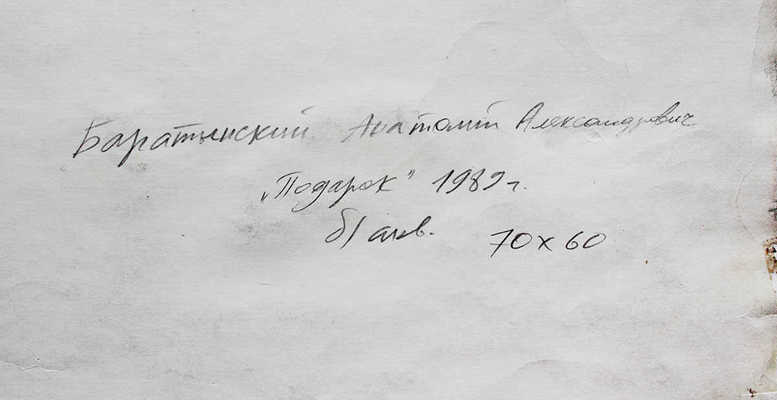 Баратынский Анатолий Александрович
„Подарок" 1989 г.
б/акв. 70x60